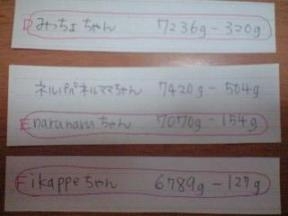 Dみっちょちゃん 7236g-320g
ネルパパネルママちゃん 7420g-504g
Enarunaruちゃん 7070g-154g
Fikappeちゃん 6789g-127g